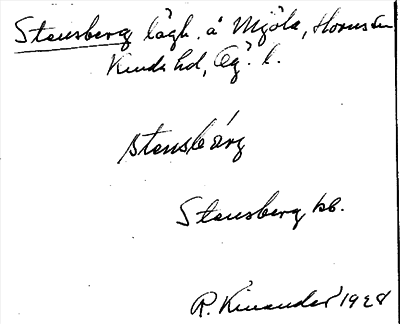 Stensberg lägh. å Mjöla, Horns sn
Kinda hd, Ög. l.
stensbárg
Stensberg, kb.
R. Kinander 1928